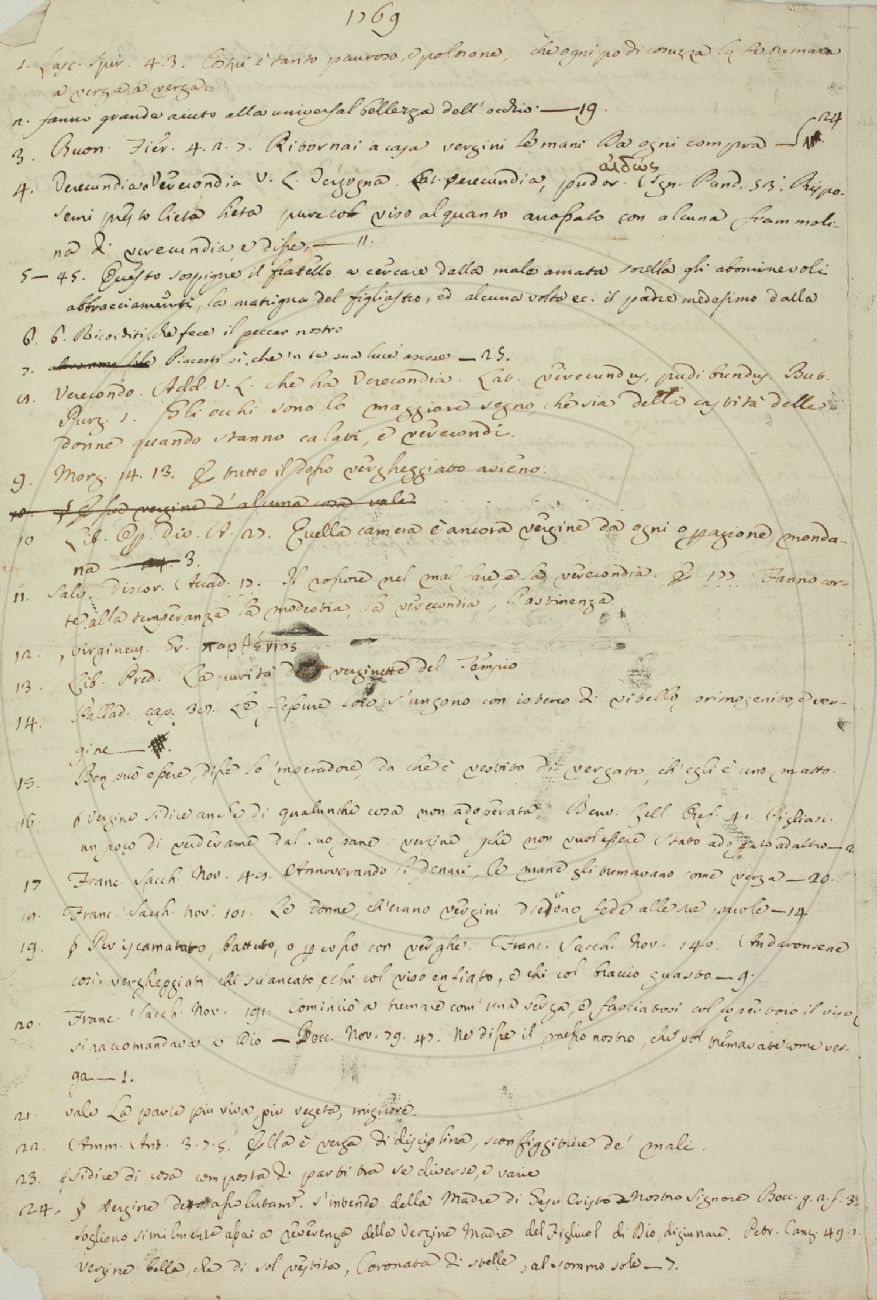 1769
1. Lasc. Spir. 4. 3. Costui è tanto pauroso, e poltrone, che ogni po di cosuzza lo fa tremare
a verga a verga
2. fanno grande aiuto alla universal bellezza dell' occhio — 19.
3. Buon. Fier. 4. 2. 7. Ritornai a casa vergini le mani Da ogni compra — 24
4. Verecundia e Verecondia V. L. Vergogna. Lat. verecundia, pudor. αιδώς Agn. Pand. 53. Rispo-
semi presto lieta lieta pure col viso alquanto avvosato con alcuna frammoli-
na di verecundia, e disse, — 11.
5 — 45. Questo sospigne il fratello a cercare dalla male amata sorella gli abominevoli
abbracciamenti, la matrigna del figliastro, ed alcuna volta ec. il padre medesimo dalla
6. 6. Ricorditi, che fece il peccar nostro
7. Piacesti sì, che 'n te sua luce ascose — 25.
8. Verecondo. Add. V. L. che ha Verecondia. Lat. verecundus, pudibundus. But.
Purg. 1. Gli occhi sono lo maggiore segno, che sia della castità delle
donne quando stanno calati, e verecondi.
9. Morg. 14. 13. E tutto il dosso vergheggiato avieno.
10 Lib. Op. Div. A. 27. Quella camera è ancora vergine da ogni opragione monda-
na — 3.
11. Salv. Discor. Accad. 17. Il rossore nel mal fare, e la verecondia. E 177. Fanno cor-
te alla temperanza la modestia, la verecondia, l'astinenza
12. , virgineus. Gr. παρθένιος
13. Lib. Pred. La purità delle verginette del Tempio
14. Pallad. cap. 37. Le s'ungono con isterco di vitello primogenito, e ver-
gine —
15. Ben può essere, disse lo 'mperadore, da che è vestito di vergato, ch'egli è uno matto.
16. § Vergine si dice anche di qualunche cosa non adoperata. Benv. Cell. Oref. 41. Pigliasi
un poco di verderame dal suo pane vergine, che non vuol essere stato adoprato ad altro — 2
17 Franc. Sacch. Nov. 48. Annoverando li denari, le mane gli tremavano come verga — 20.
18. Franc. Sacch. nov. 101. Le donne, ch'erano vergini diedono fede alle sue parole — 14
19. § Per iscamatato, battuto, o percosso con verghe. Franc. Sacch. Nov. 140. Andaronsene
così vergheggiati, chi sciancato, e chi col viso enfiato, e chi col braccio guasto — 9.
20. Franc. Sacch. Nov. 191. Cominciò a tremare com' una verga, e fasciatosi col copertoio il viso,
si raccomandava a Dio — Bocc. Nov. 79. 47. Ne disse il messo nostro, che voi tremavate come ver-
ga — 1.
21. vale La parte più viva, più vegeta, migliore.
22. Amm. Ant. 3. 7. 5. Ella è verga di disciplina, sconfiggitrice de' mali.
23. § si dice di cosa composta di parti tra se diverse, e varie
24. § Vergine detto assolutam. s'intende della Madre di Gesù Cristo Nostro Signore Bocc. g. 2. f. 3.
sogliono similmente assai a reverenza della Vergine Madre del Figliuol di Dio, digiunare. Petr. Canz. 49. 1.
Vergine bella, che di sol vestita, Coronata di stelle, al sommo sole — 7.